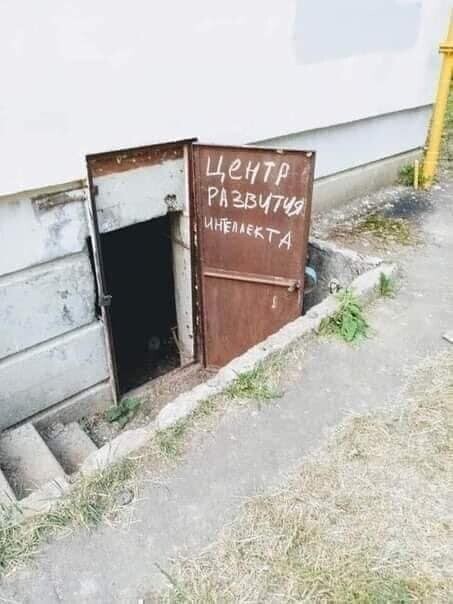 ЦЕНТР
РАЗВИТИЯ
ИНТЕЛЛЕКТА